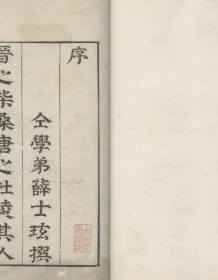 序
仝學弟薛士玹撰
晉之柴桑唐之杜陵其人